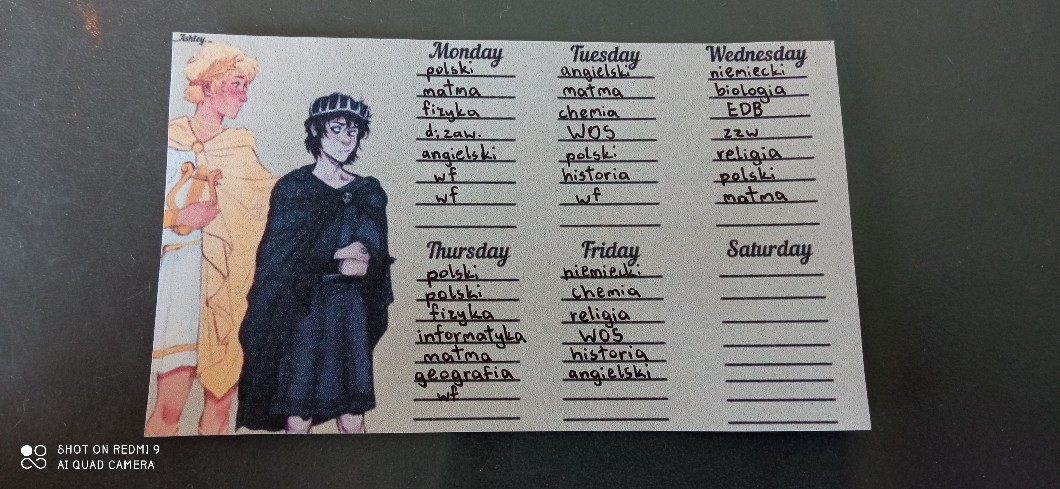 _Ashley_
Monday
polski
matma
fizyka
d; zaw.
angielski
wf
wf
Tuesday
angielski
matma
chemia
WOS
polski
historia
wf
Wednesday
niemiecki
biologia
EDB
zzw
religia
polski
matma
Thursday
polski
polski
fizyka
informatyka
matma
geografia
wf
Friday
niemiecki
chemia
religia
WOS
historia
angielski
Saturday
SHOT ON REDMI 9
AI QUAD CAMERA